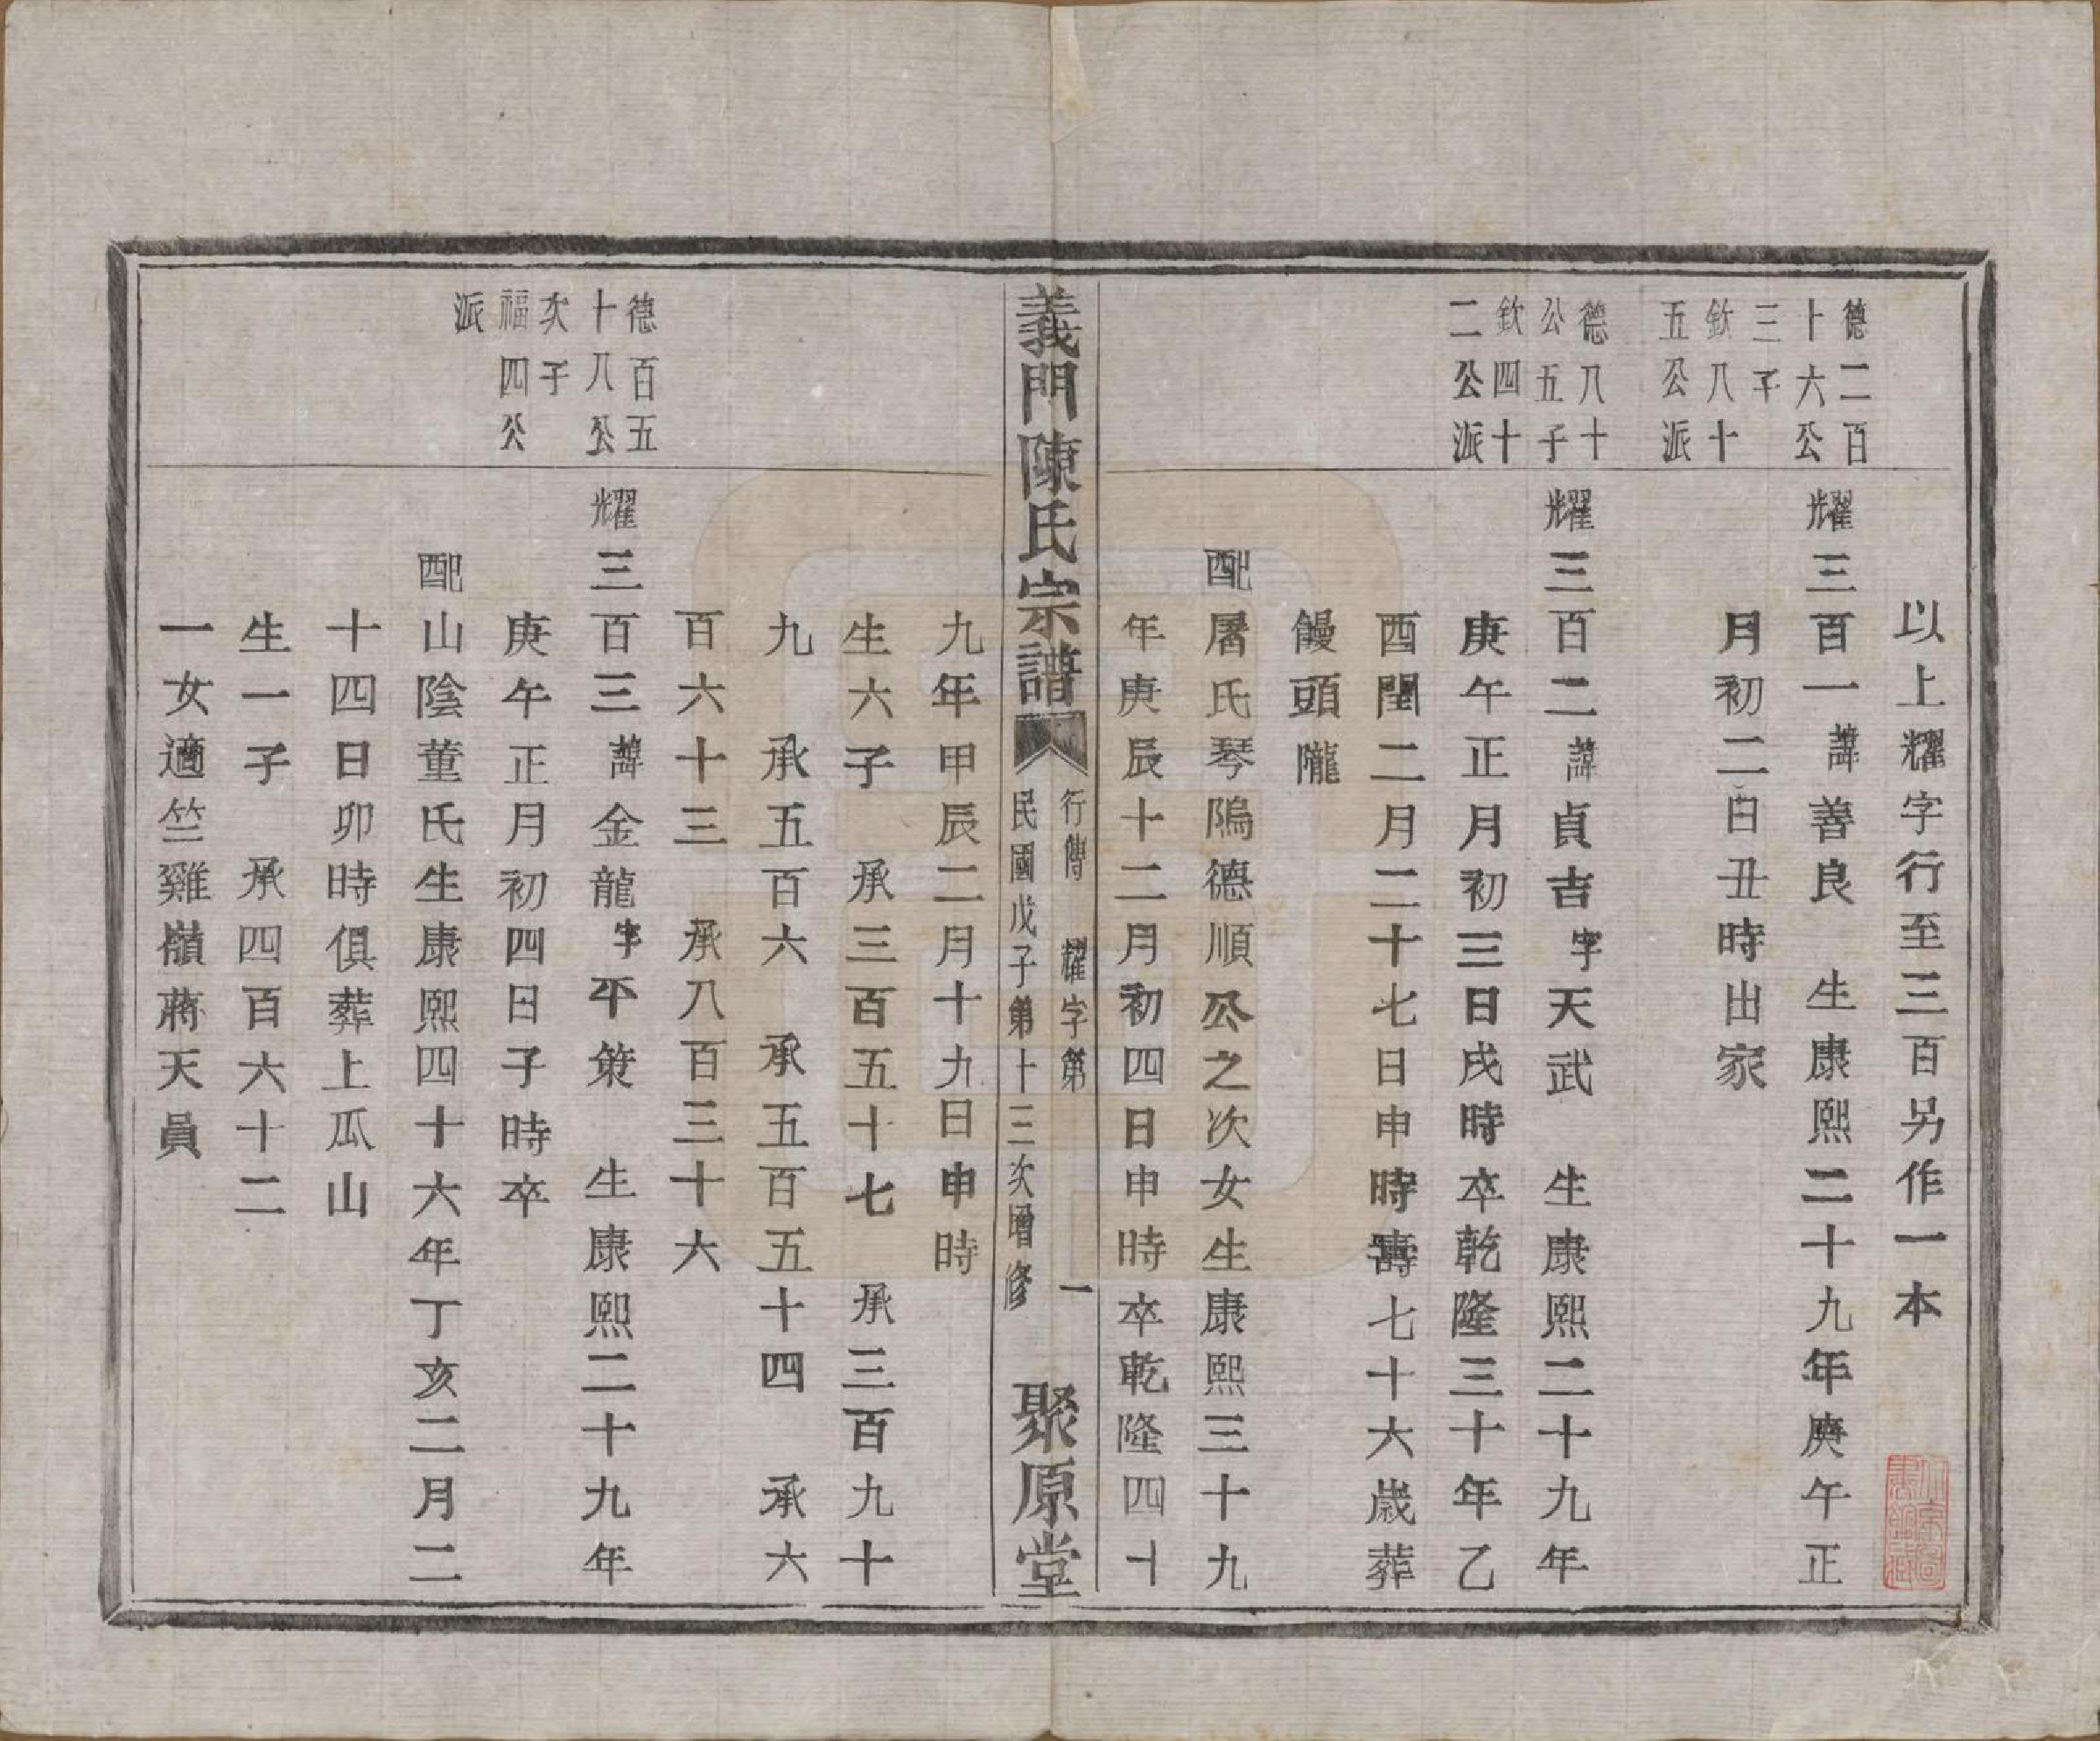 以上耀字行至三百另作一本
德二百
十六公
三子
欽八十
五公派
耀三百一諱善良 生康熙二十九年庚午正
月初二日丑時出家
德八十
公五子
欽四十
二公派
耀三百二諱貞吉字天武 生康熙二十九年
庚午正月初三日戌時卒乾隆三十年乙
酉閏二月二十七日申時壽七十六歲葬
饅頭隴
配屠氏琴隖德順公之次女生康熙三十九
年庚辰十二月初四日申時卒乾隆四十
義門陳氏宗譜
行傳 耀字第 一
民國戊子第十三次增修
聚原堂
九年甲辰二月十九日申時
生六子 承三百五十七 承三百九十
九 承五百六 承五百五十四 承六
百六十三 承八百三十六
德百五
十八公
次子
福四公
派
耀三百三諱金龍字平策 生康熙二十九年
庚午正月初四日子時卒
配山陰董氏生康熙四十六年丁亥二月二
十四日卯時俱葬上瓜山
生一子 承四百六十二
一女適竺雞嶺蔣天員